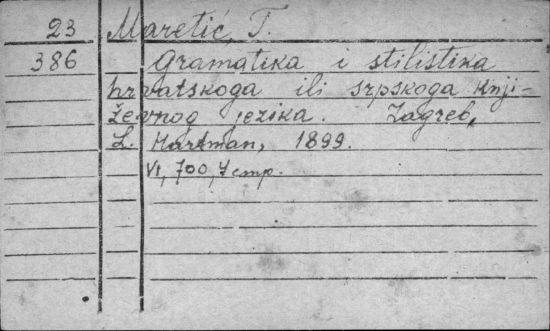 23 Maretić, T.
386 Gramatika i stilistika
hrvatskoga ili srpskoga knji-
ževnog jezika. Zagreb,
L. Hartman, 1899.
VI, 700, 4 стр.